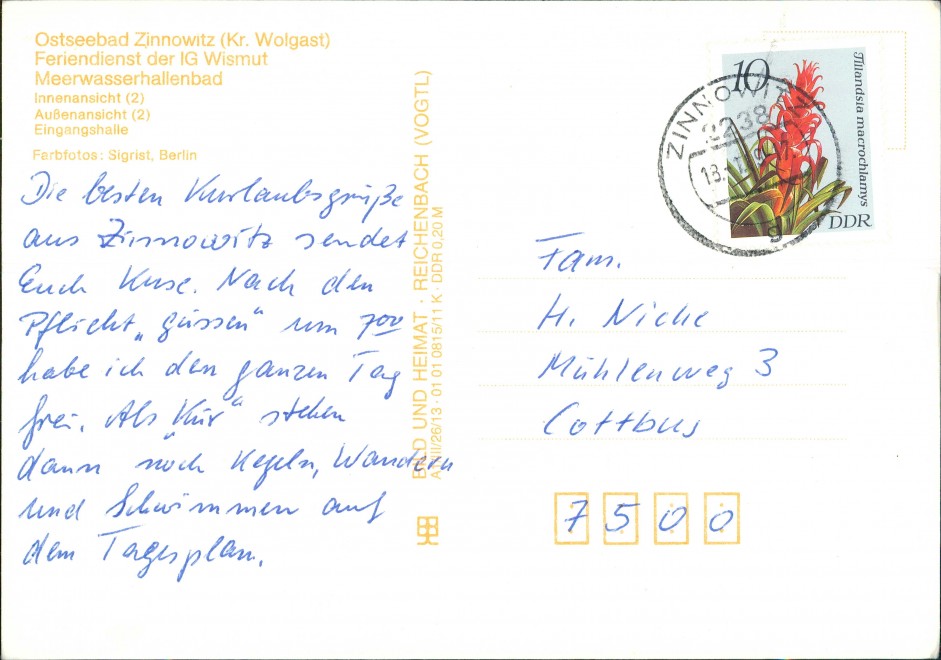 Ostseebad Zinnowitz (Kr. Wolgast)
Feriendienst der IG Wismut
Meerwasserhallenbad
Innenansicht (2)
Außenansicht (2)
Eingangshalle
Farbfotos: Sigrist, Berlin
Die besten Kurlaubsgrüße
aus Zinnowitz sendet
Euch Kuse. Nach den
Pflicht „güssen“ um 7⁰⁰
habe ich den ganzen Tag
frei. Als „Kur“ stehen
dann noch Kegeln, Wandern
und Schwimmen auf
dem Tagesplan.
BILD UND HEIMAT · REICHENBACH (VOGTL)
01 01 0815/11 K · DDR 0,20 M
10
Tillandsia macrochlamys
DDR
ZINNOWITZ
2238
g
Fam.
H. Niche
Mühlenweg 3
Cottbus
7500